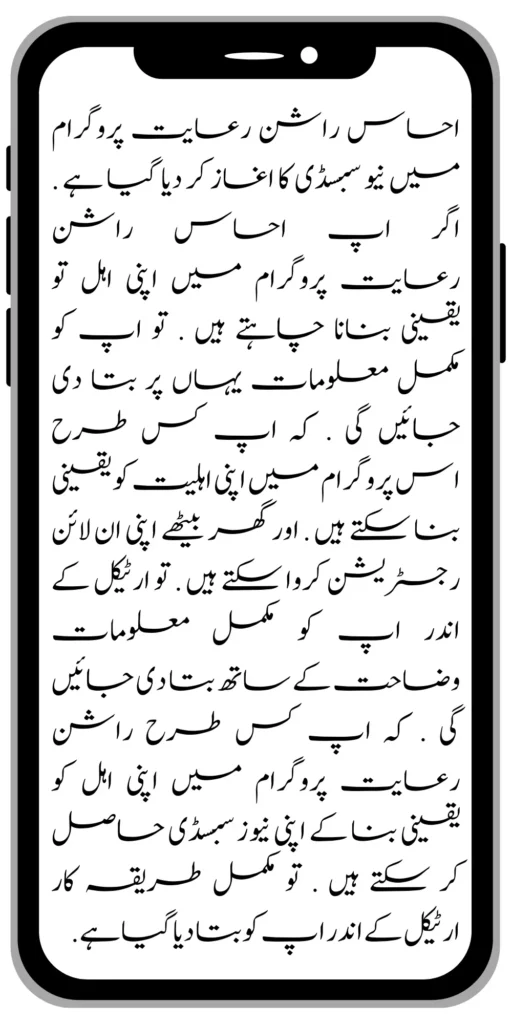 احساس راشن رعایت پروگرام
میں نیو سبسڈی کا اغاز کر دیا گیا ہے .
اگر اپ احساس راشن
رعایت پروگرام میں اپنی اہل تو
یقینی بنانا چاہتے ہیں . تو اپ کو
مکمل معلومات یہاں پر بتا دی
جائیں گی . کہ اپ کس طرح
اس پروگرام میں اپنی اہلیت کو یقینی
بنا سکتے ہیں . اور گھر بیٹھے اپنی ان لائن
رجسٹریشن کروا سکتے ہیں . تو ارٹیکل کے
اندر اپ کو مکمل معلومات
وضاحت کے ساتھ بتا دی جائیں
گی . کہ اپ کس طرح راشن
رعایت پروگرام میں اپنی اہل کو
یقینی بنا کے اپنی نیوز سبسڈی حاصل
کر سکتے ہیں . تو مکمل طریقہ کار
ارٹیکل کے اندر اپ کو بتا دیا گیا ہے .